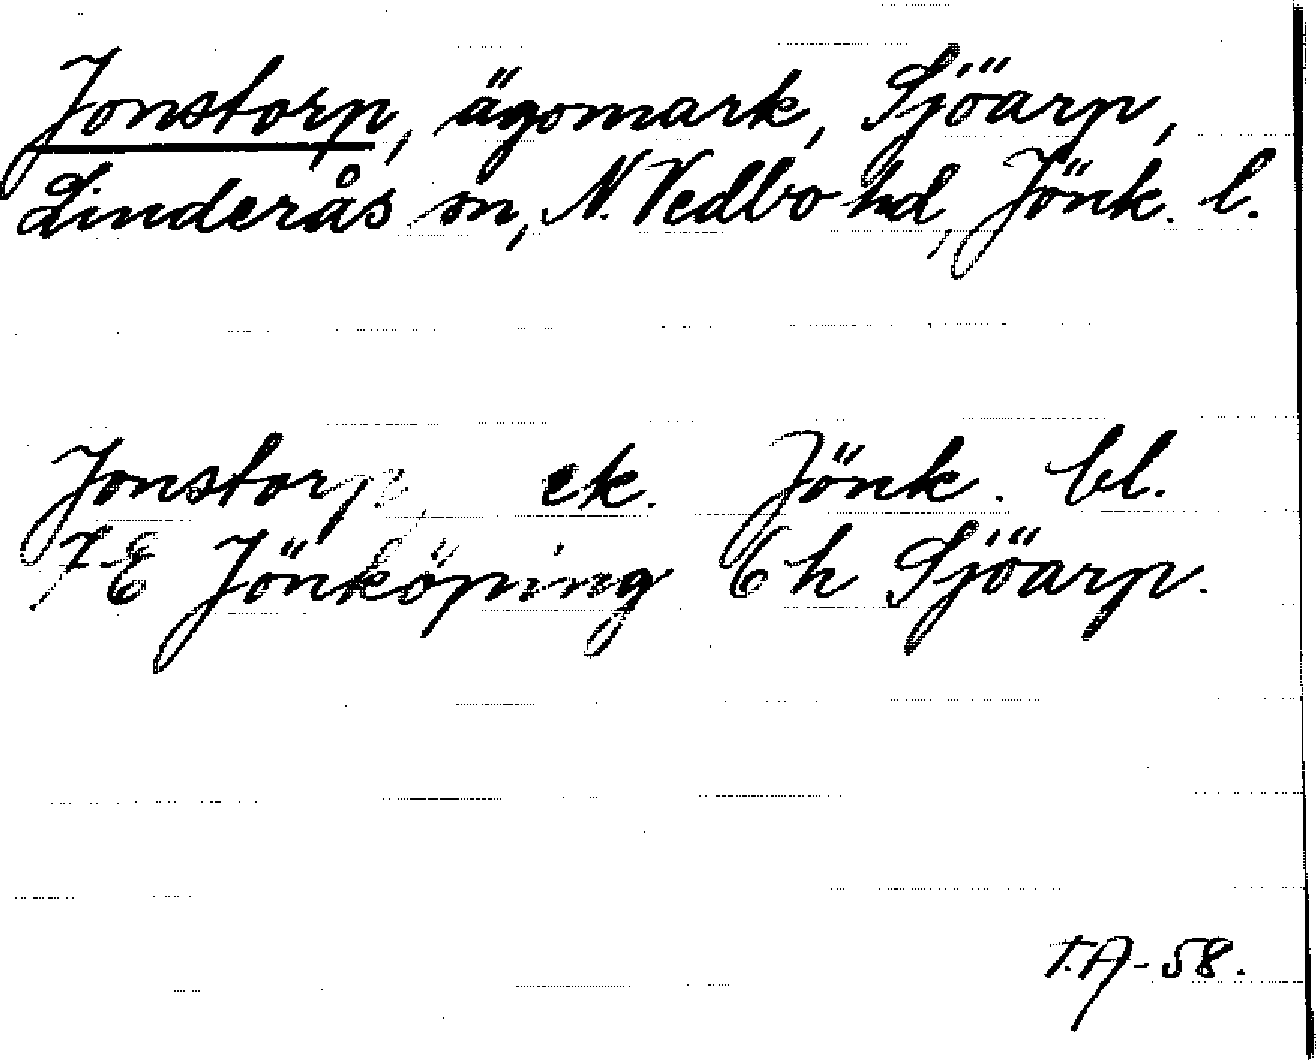 Jonstorp, ägomark, Sjöarp,
Linderås sn, N. Vedbo hd, Jönk. l.
Jonstorp, ek. Jönk. bl.
7E Jönköping 6h Sjöarp.
T.A-58.